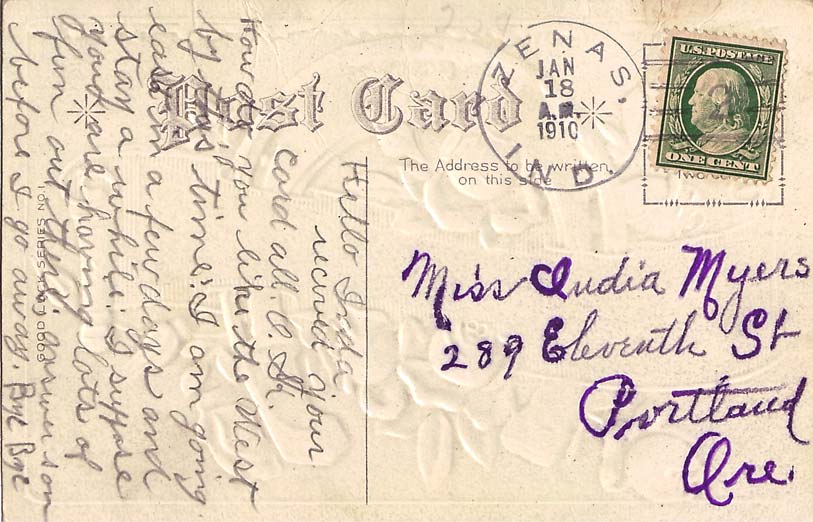 Post Card
The Address to be written
on this side
ZENAS,
IND.
JAN
18
A.M.
1910
U.S. POSTAGE
ONE CENT
TWO CENTS
GOOD LUCK SERIES NO. 1
Miss India Myers
289 Eleventh St
Portland
Ore.
Hello India,
recived your
card all O.K.
How do you like the West
by this time. I am going
east in a few days and
stay a while. I suppose
you are having lots of
fun out there. answer soon
before I go away. Bye Bye